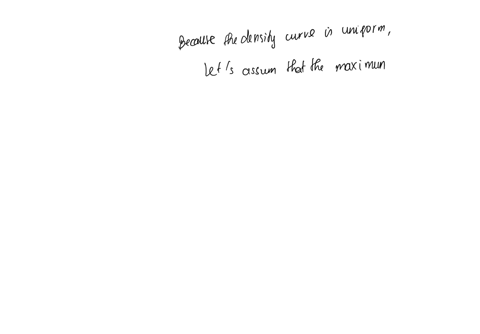 Because the density curve is uniform,
Let's assum that the maximun